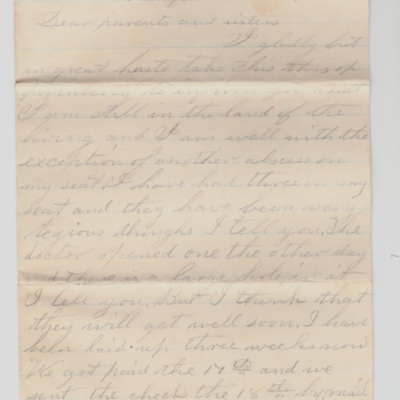 Dear parents and sister
I gladly but
in great haste take this
I am still in the land of the
living and I am well with the
exception of another absess on
my seat. I have had three on my
seat and they have been very
tegious thinghs I tell you. The
doctor opened one the other day
and there is a large hole in it
I tell you. But I think that
they will get well soon. I have
been laid up three weeks now
We got paid the 17th and we
sent the check the 18th by mail